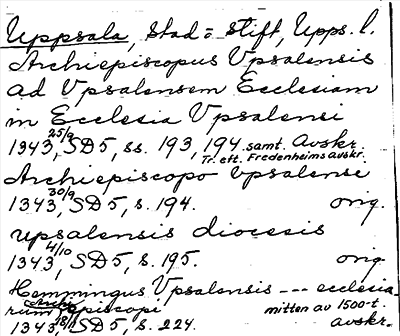 Uppsala, Stad = Stift, Upps. l.
Archiepiscopus Vpsalensis
ad Vpsalensem Ecclesiam
in Ecclesia Vpsalensi
1343 25/9, SD5, ss. 193, 194. samt. Avskr.
Tr. eft. Fredenheims avskr.
Archiepiscopo Vpsalense
1343 30/9, SD5, s. 194. orig.
upsalensis diocesis
1343 4/10, SD5, s. 195. orig
Hemmingus Vpsalensis --- ecclesia-
rum Archiepiscopi mitten av 1500-t.
1343 18/11 SD5, s. 224. avskr.